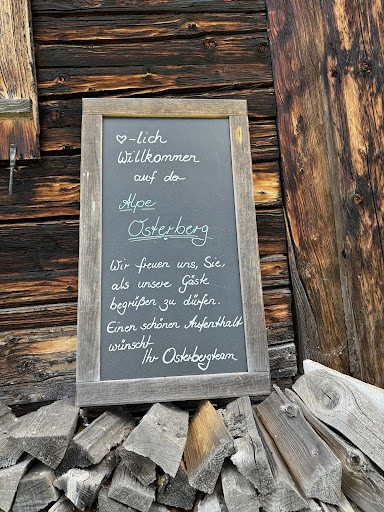 ♡-lich
Willkommen
auf der
Alpe
Osterberg
Wir freuen uns, Sie,
als unsere Gäste
begrüßen zu dürfen.
Einen schönen Aufenthalt
wünscht
Ihr Osterbergteam